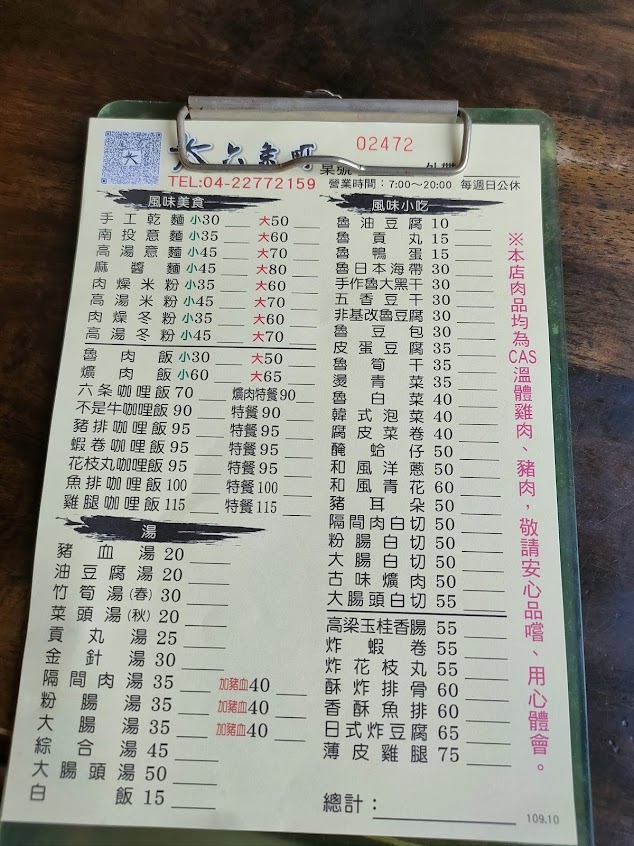 大六食町 02472
桌號 外帶
TEL:04-22772159 營業時間：7:00~20:00 每週日公休
風味美食
手工乾麵 小30 大50
南投意麵 小35 大60
高湯意麵 小45 大70
麻醬麵 小45 大80
肉燥米粉 小35 大60
高湯米粉 小45 大70
肉燥冬粉 小35 大60
高湯冬粉 小45 大70
魯肉飯 小30 大50
爌肉飯 小60 大65
六条咖哩飯 70 爌肉特餐 90
不是牛咖哩飯 90 特餐 90
豬排咖哩飯 95 特餐 95
蝦卷咖哩飯 95 特餐 95
花枝丸咖哩飯 95 特餐 95
魚排咖哩飯 100 特餐 100
雞腿咖哩飯 115 特餐 115
湯
豬血湯 20
油豆腐湯 20
竹筍湯(春) 30
菜頭湯(秋) 20
貢丸湯 25
金針湯 30
隔間肉湯 35 加豬血40
粉腸湯 35 加豬血40
大腸湯 35 加豬血40
綜合湯 45
大腸頭湯 50
白飯 15
風味小吃
魯油豆腐 10
魯貢丸 15
魯鴨蛋 15
魯日本海帶 30
手作魯大黑干 30
五香豆干 30
非基改魯豆腐 30
魯豆包 30
皮蛋豆腐 35
魯筍干 35
燙青菜 35
魯白菜 40
韓式泡菜 40
腐皮菜卷 40
醃蛤仔 50
和風洋蔥 50
和風青花 60
豬耳朵 50
隔間肉白切 50
粉腸白切 50
大腸白切 50
古味爌肉 50
大腸頭白切 55
高梁玉桂香腸 55
炸蝦卷 55
炸花枝丸 55
酥炸排骨 60
香酥魚排 60
日式炸豆腐 65
薄皮雞腿 75
總計：
109.10
※本店肉品均為CAS溫體雞肉、豬肉，敬請安心品嚐、用心體會。